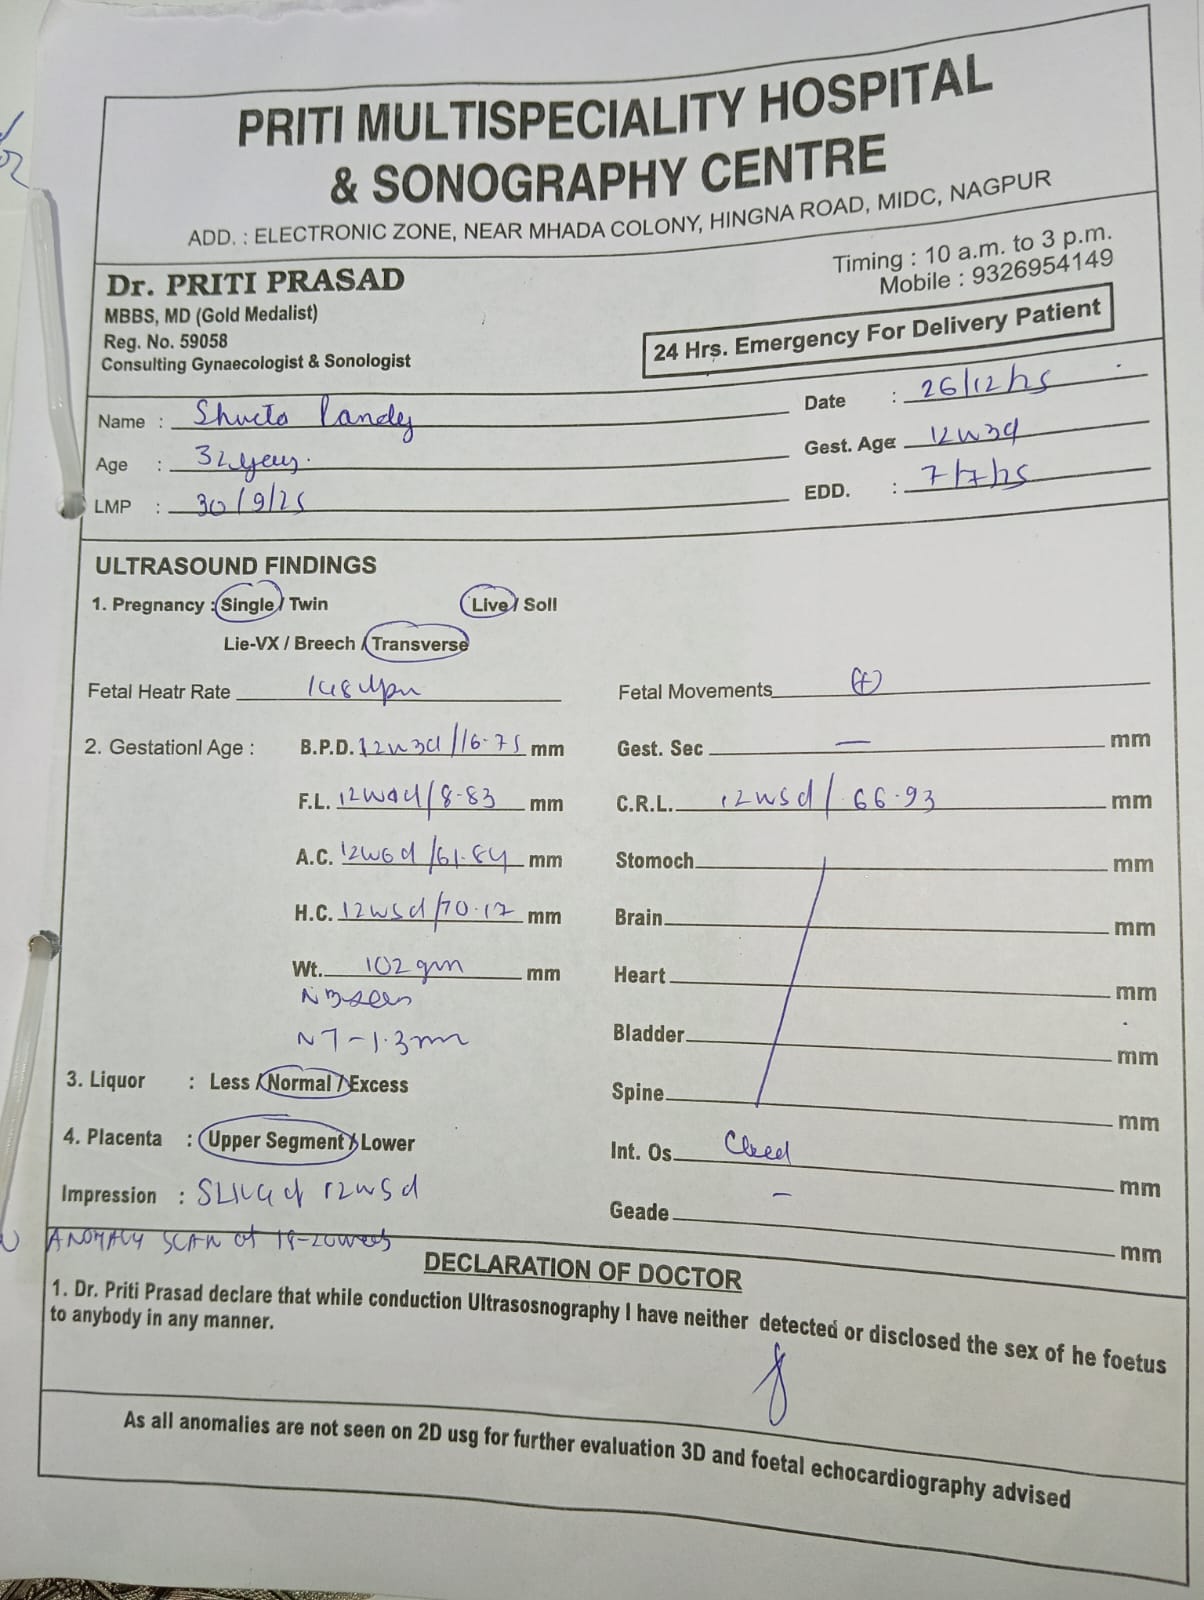 PRITI MULTISPECIALITY HOSPITAL
& SONOGRAPHY CENTRE
ADD. : ELECTRONIC ZONE, NEAR MHADA COLONY, HINGNA ROAD, MIDC, NAGPUR
Dr. PRITI PRASAD
MBBS, MD (Gold Medalist)
Reg. No. 59058
Consulting Gynaecologist & Sonologist
Timing : 10 a.m. to 3 p.m.
Mobile : 9326954149
24 Hrs. Emergency For Delivery Patient
Name :
Date : 26/12/25
Age : 32 years.
Gest. Age 12w3d
LMP : 30/9/25
EDD. : 7/7/25
ULTRASOUND FINDINGS
1. Pregnancy : Single / Twin Live / Soll
Lie-VX / Breech / Transverse
Fetal Heatr Rate 148
Fetal Movements (+)
2. Gestationl Age : B.P.D. 12w3d/16.75 mm
Gest. Sec — mm
F.L. /8.83 mm
C.R.L. 12w5d/66.93 mm
A.C. 12w6d/61.84 mm
Stomoch mm
H.C. 12w5d/70.17 mm
Brain mm
Wt. 102 gm mm
Heart mm
NB seen
NT-1.3mm
Bladder mm
3. Liquor : Less / Normal / Excess
Spine mm
4. Placenta : Upper Segment / Lower
Int. Os. Closed mm
Impression : SLIUG of 12w5d
Geade - mm
ANOMALY SCAN at 18-20weeks
DECLARATION OF DOCTOR
1. Dr. Priti Prasad declare that while conduction Ultrasosnography I have neither detected or disclosed the sex of he foetus
to anybody in any manner.
As all anomalies are not seen on 2D usg for further evaluation 3D and foetal echocardiography advised